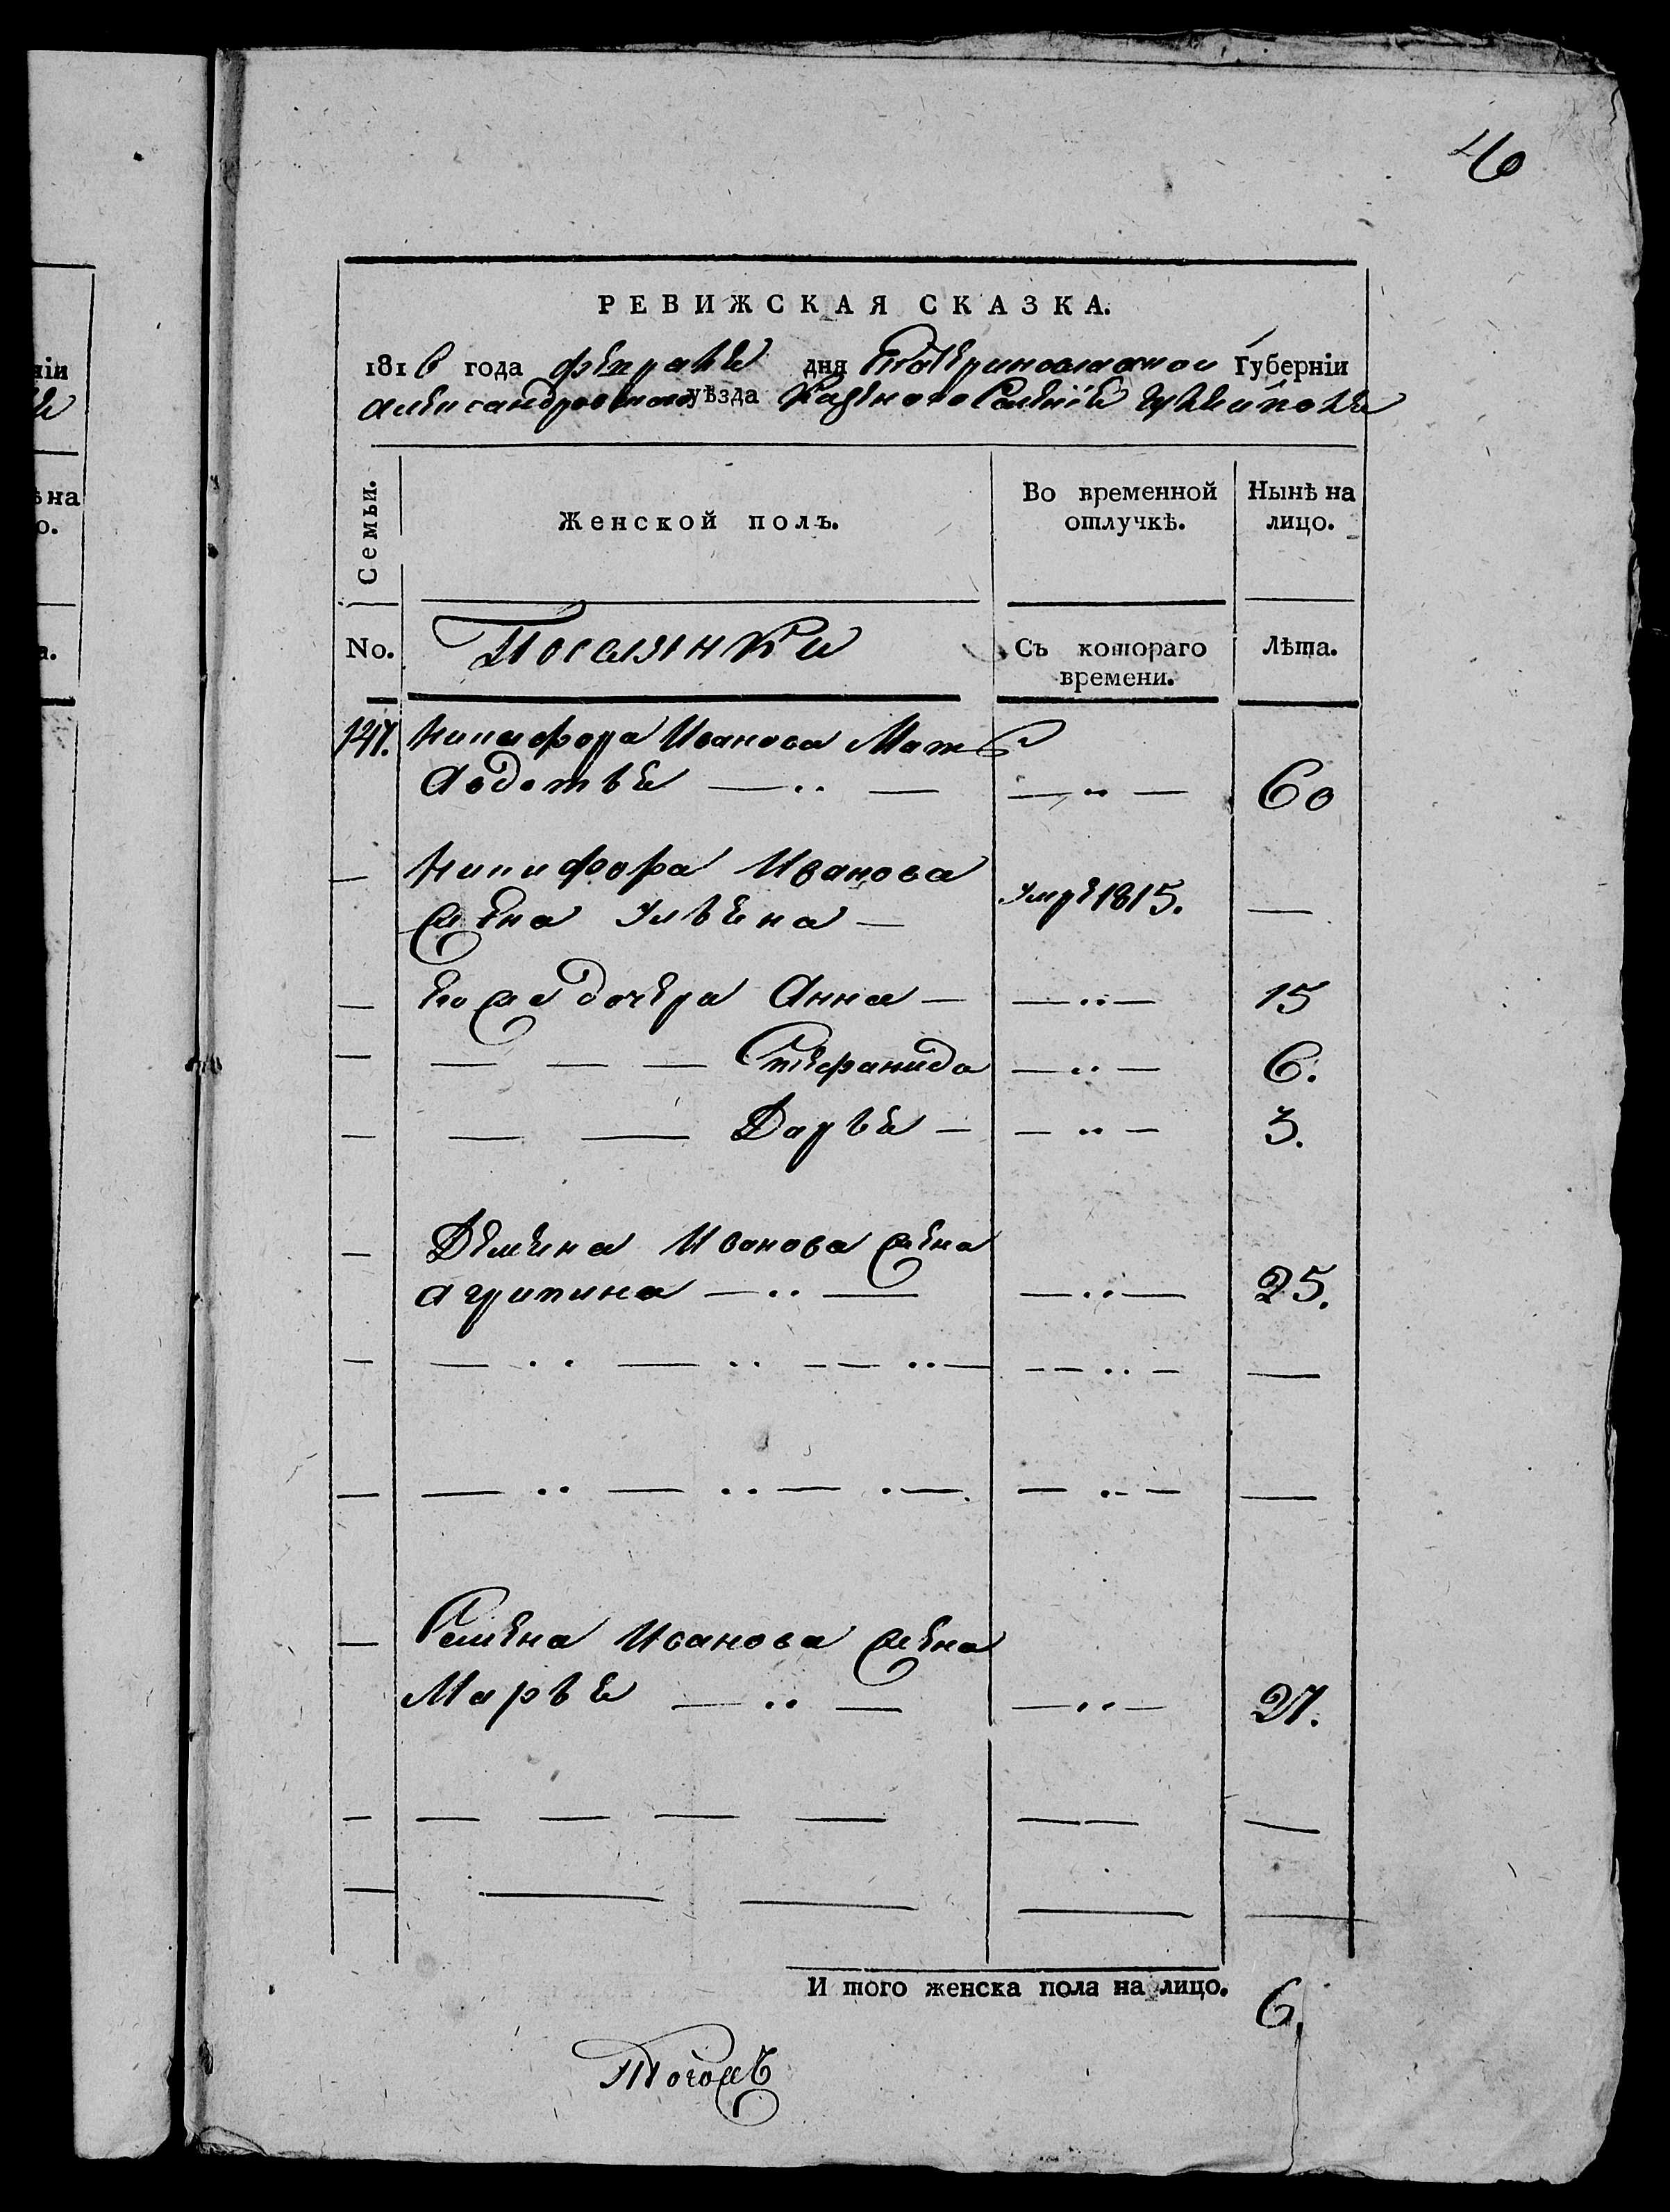 46
РЕВИЖСКАЯ СКАЗКА.
1816 года февраля дня Екатеринославской Губерніи
Александровскаго уѣзда Казенного Селенія Гуляйполя
Семьи.
Женской полъ.
Во временной отлучкѣ.
Нынѣ на лицо.
No.
Поселянки
Съ котораго времени.
Лѣта.
147. Никифора Иванова Мать
Авдотья — ·· — — ·· — 60
— Никифора Иванова
жена Ульяна — умре 1815. —
— Его же дочеря Анна — — ·· — 15
— — — — Стефанида — ·· — 6.
— — — Дарья — — ·· — 3.
— Демьяна Иванова жена
Агрипина — ·· — — ·· — 25.
— Семена Иванова жена
Марья — ·· — — ·· — 27.
И того женска пола на лицо. 6.
Тогожъ
ніи
ѣ на
о.
а.